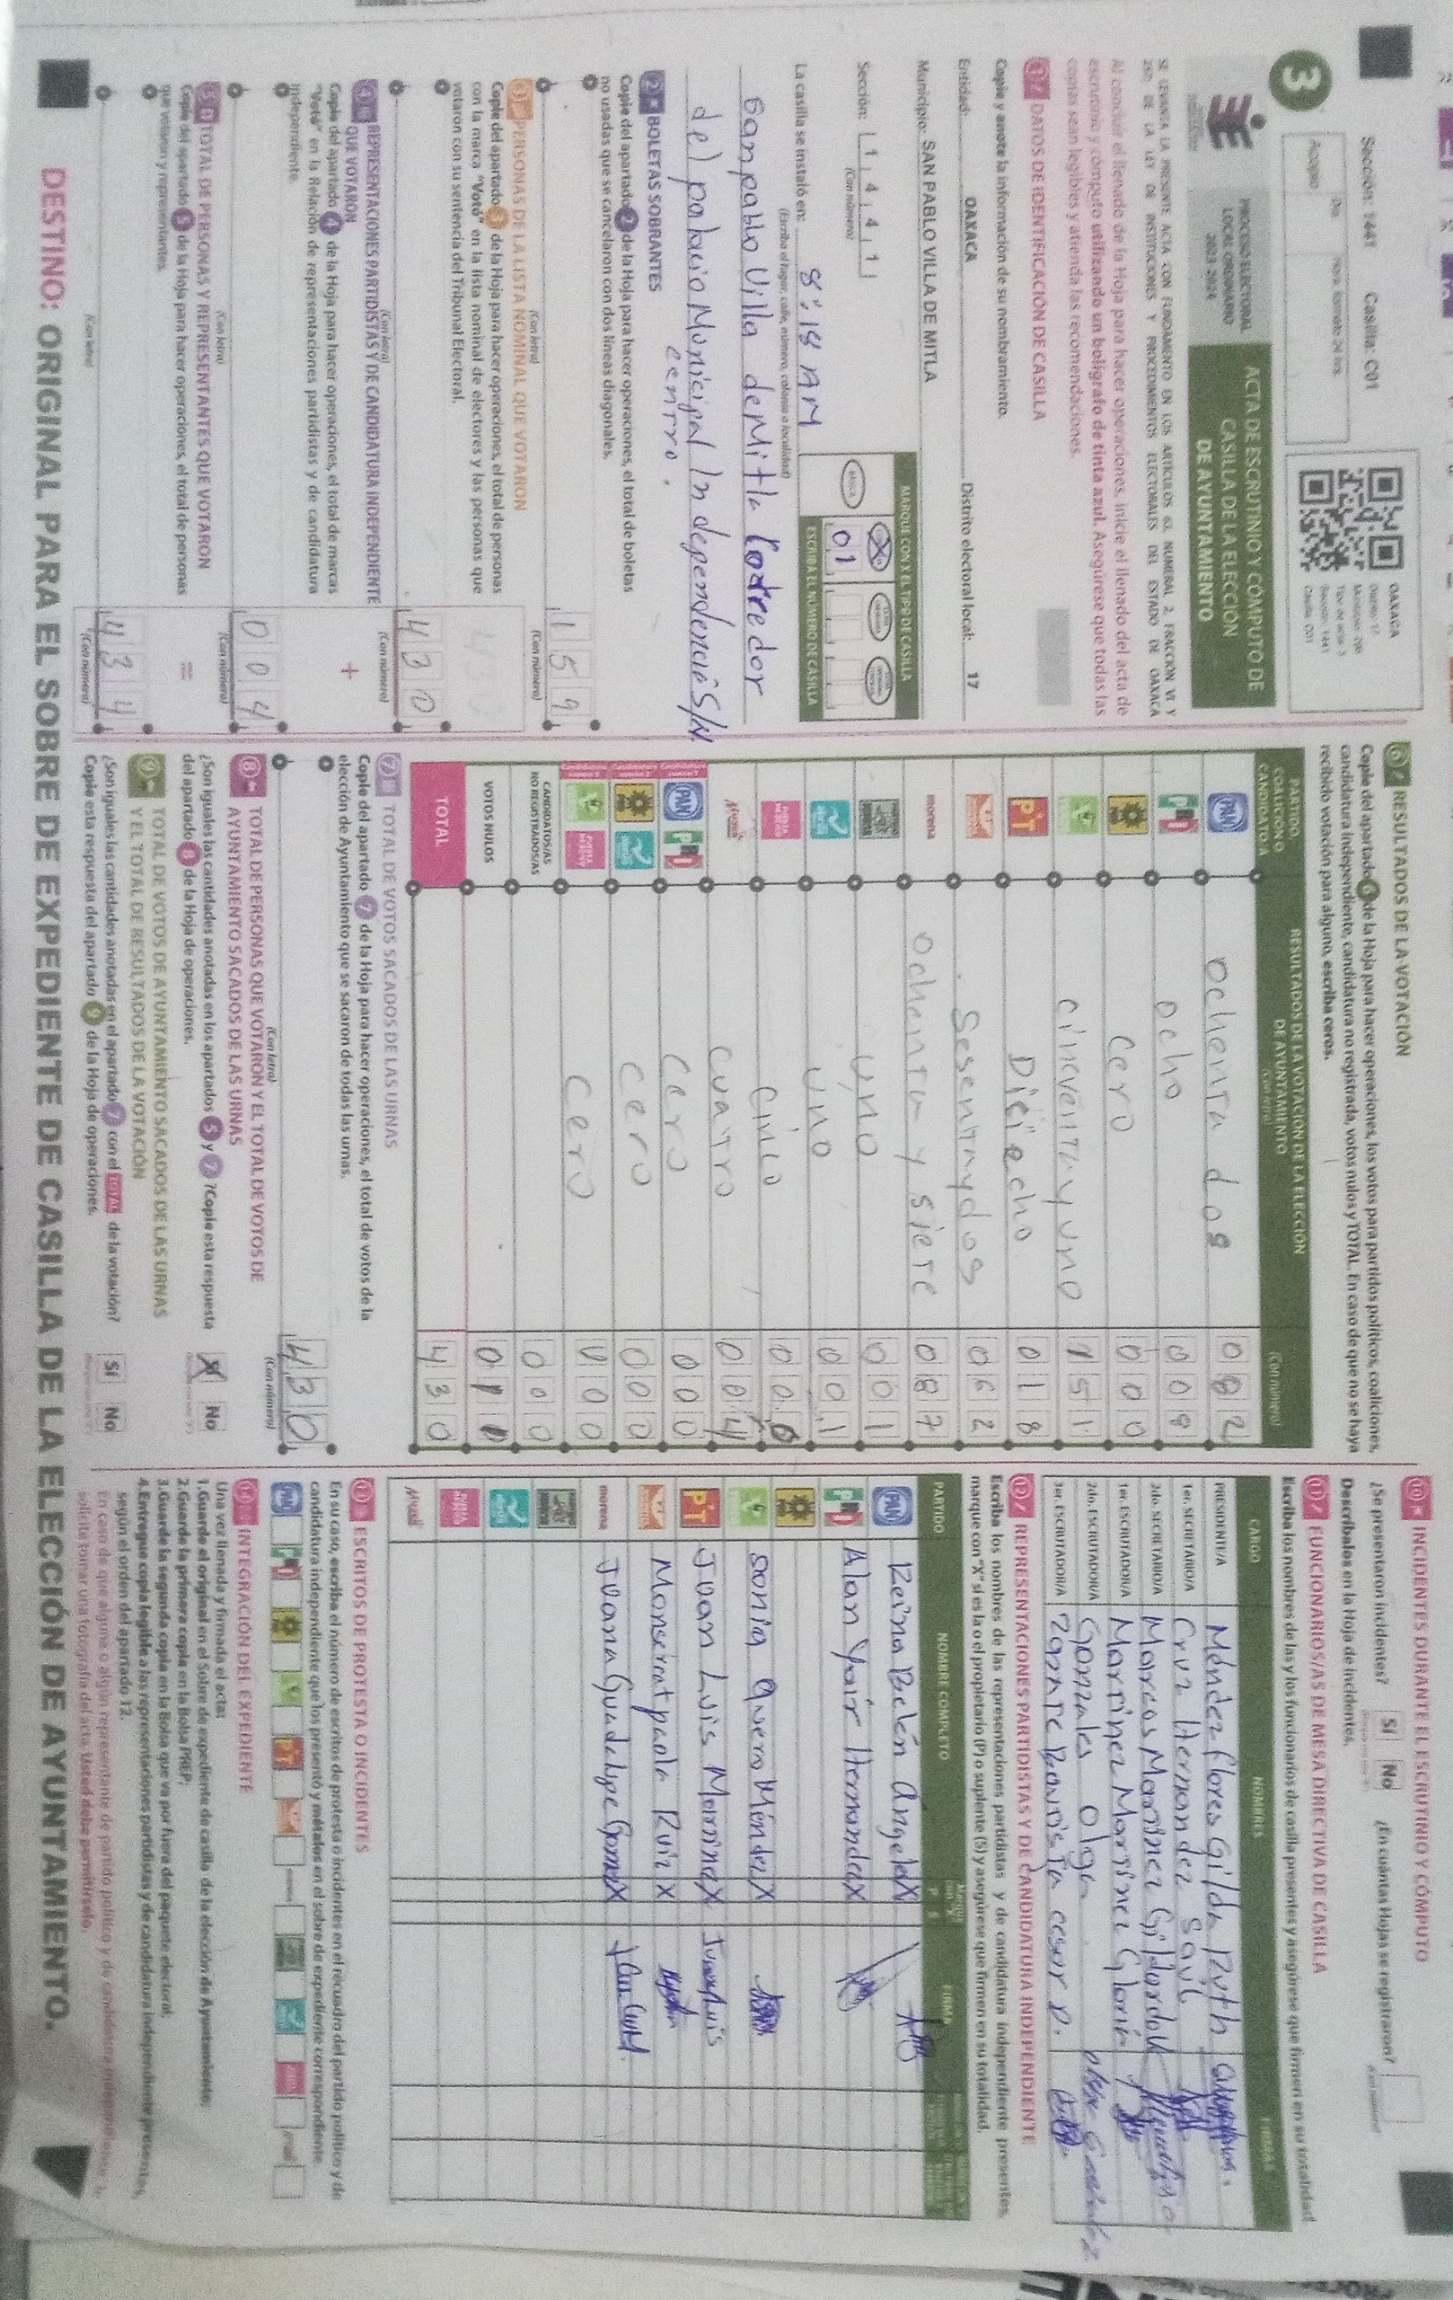 Sección: 1441 Casilla: C01
3
Acopio
Día
Hora, formato 24 hrs.
OAXACA
Distrito: 17
Tipo de acta: 3
Sección: 1441
Casilla: C01
PROCESO ELECTORAL
LOCAL ORDINARIO
2023-2024
ACTA DE ESCRUTINIO Y CÓMPUTO DE
CASILLA DE LA ELECCIÓN
DE AYUNTAMIENTO
SE LEVANTA LA PRESENTE ACTA CON FUNDAMENTO EN LOS ARTÍCULOS 63, NUMERAL 2, FRACCIÓN VI Y
250 DE LA LEY DE INSTITUCIONES Y PROCEDIMIENTOS ELECTORALES DEL ESTADO DE OAXACA
Al concluir el llenado de la Hoja para hacer operaciones, inicie el llenado del acta de
escrutinio y cómputo utilizando un bolígrafo de tinta azul. Asegúrese que todas las
copias sean legibles y atienda las recomendaciones.
1 DATOS DE IDENTIFICACIÓN DE CASILLA
Copie y anote la información de su nombramiento.
Entidad: OAXACA Distrito electoral local: 17
Municipio: SAN PABLO VILLA DE MITLA
Sección: 1 4 4 1
(Con número)
MARQUE CON X EL TIPO DE CASILLA
BÁSICA
X
01
ESCRIBA EL NÚMERO DE CASILLA
La casilla se instaló en: 8:18 AM
(Escriba el lugar, calle, número, colonia o localidad)
San pablo Villa de Mitla corredor
del palacio Municipal Independencia S/N.
centro.
2 BOLETAS SOBRANTES
Copie del apartado 2 de la Hoja para hacer operaciones, el total de boletas
no usadas que se cancelaron con dos líneas diagonales.
1 5 9
(Con letra) (Con número)
3 PERSONAS DE LA LISTA NOMINAL QUE VOTARON
Copie del apartado 3 de la Hoja para hacer operaciones, el total de personas
con la marca "Votó" en la lista nominal de electores y las personas que
votaron con su sentencia del Tribunal Electoral.
4 3 0
(Con letra) (Con número)
4 REPRESENTACIONES PARTIDISTAS Y DE CANDIDATURA INDEPENDIENTE
QUE VOTARON
+
Copie del apartado 4 de la Hoja para hacer operaciones, el total de marcas
"Votó" en la Relación de representaciones partidistas y de candidatura
independiente.
0 0 4
(Con letra) (Con número)
5 TOTAL DE PERSONAS Y REPRESENTANTES QUE VOTARON
=
Copie del apartado 5 de la Hoja para hacer operaciones, el total de personas
que votaron y representantes.
4 3 4
(Con letra) (Con número)
6 RESULTADOS DE LA VOTACIÓN
Copie del apartado 6 de la Hoja para hacer operaciones, los votos para partidos políticos, coaliciones,
candidatura independiente, candidatura no registrada, votos nulos y TOTAL. En caso de que no se haya
recibido votación para alguno, escriba ceros.
PARTIDO, COALICIÓN O CANDIDATO/A
RESULTADOS DE LA VOTACIÓN DE LA ELECCIÓN
DE AYUNTAMIENTO
(Con letra) (Con número)
PAN ochenta dos 0 8 2
PRI ocho 0 0 8
cero 0 0 0
cincuenta y uno 1 5 1
PT Dieciocho 0 1 8
sesenta y dos 0 6 2
morena ochenta y siete 0 8 7
uno 0 0 1
uno 0 0 1
cinco
cuatro 0 0 4
PAN PRI cero 0 0 0
cero 0 0 0
cero 0 0 0
CANDIDATOS/AS
NO REGISTRADOS/AS 0 0 0
VOTOS NULOS
TOTAL 4 3 0
7 TOTAL DE VOTOS SACADOS DE LAS URNAS
Copie del apartado 7 de la Hoja para hacer operaciones, el total de votos de la
elección de Ayuntamiento que se sacaron de todas las urnas.
4 3 0
(Con letra) (Con número)
8 TOTAL DE PERSONAS QUE VOTARON Y EL TOTAL DE VOTOS DE
AYUNTAMIENTO SACADOS DE LAS URNAS
¿Son iguales las cantidades anotadas en los apartados 5 y 7? Copie esta respuesta
del apartado 8 de la Hoja de operaciones.
X No
9 TOTAL DE VOTOS DE AYUNTAMIENTO SACADOS DE LAS URNAS
Y EL TOTAL DE RESULTADOS DE LA VOTACIÓN
¿Son iguales las cantidades anotadas en el apartado 7 con el TOTAL de la votación?
Copie esta respuesta del apartado 9 de la Hoja de operaciones.
Sí No
10 INCIDENTES DURANTE EL ESCRUTINIO Y CÓMPUTO
¿Se presentaron incidentes? Sí No ¿En cuántas Hojas se registraron?
Descríbalos en la Hoja de incidentes.
11 FUNCIONARIOS/AS DE MESA DIRECTIVA DE CASILLA
Escriba los nombres de las y los funcionarios de casilla presentes y asegúrese que firmen en su totalidad.
CARGO NOMBRES FIRMAS
PRESIDENTE/A Méndez flores Gilda Ruth
1er. SECRETARIO/A Cruz Hernandez Saul
2do. SECRETARIO/A Marcos Martinez Gildardo
1er. ESCRUTADOR/A Martinez Martinez Gloria
2do. ESCRUTADOR/A Gonzales Olga
3er. ESCRUTADOR/A Zarate Bautista cesar D.
12 REPRESENTACIONES PARTIDISTAS Y DE CANDIDATURA INDEPENDIENTE
Escriba los nombres de las representaciones partidistas y de candidatura independiente presentes,
marque con "X" si es la o el propietario (P) o suplente (S) y asegúrese que firmen en su totalidad.
PARTIDO NOMBRE COMPLETO P S FIRMA
PAN Reina Belén Angeles X
PRI Alan Yair Hernandez X
Sonia Quero Méndez X
PT Juan Luis Martinez X Juan Luis
Monserrat paola Ruiz X
morena Juana Guadalupe Gomez X
13 ESCRITOS DE PROTESTA O INCIDENTES
En su caso, escriba el número de escritos de protesta o incidentes en el recuadro del partido político y de
candidatura independiente que los presentó y métalos en el sobre de expediente correspondiente.
14 INTEGRACIÓN DEL EXPEDIENTE
Una vez llenada y firmada el acta:
1. Guarde el original en el Sobre de expediente de casilla de la elección de Ayuntamiento;
2. Guarde la primera copia en la Bolsa PREP;
3. Guarde la segunda copia en la Bolsa que va por fuera del paquete electoral;
4. Entregue copia legible a las representaciones partidistas y de candidatura independiente presentes,
según el orden del apartado 12.
En caso de que alguna o algún representante de partido político y de candidatura independiente le
solicite tomar una fotografía del acta. Usted debe permitírselo.
DESTINO: ORIGINAL PARA EL SOBRE DE EXPEDIENTE DE CASILLA DE LA ELECCIÓN DE AYUNTAMIENTO.